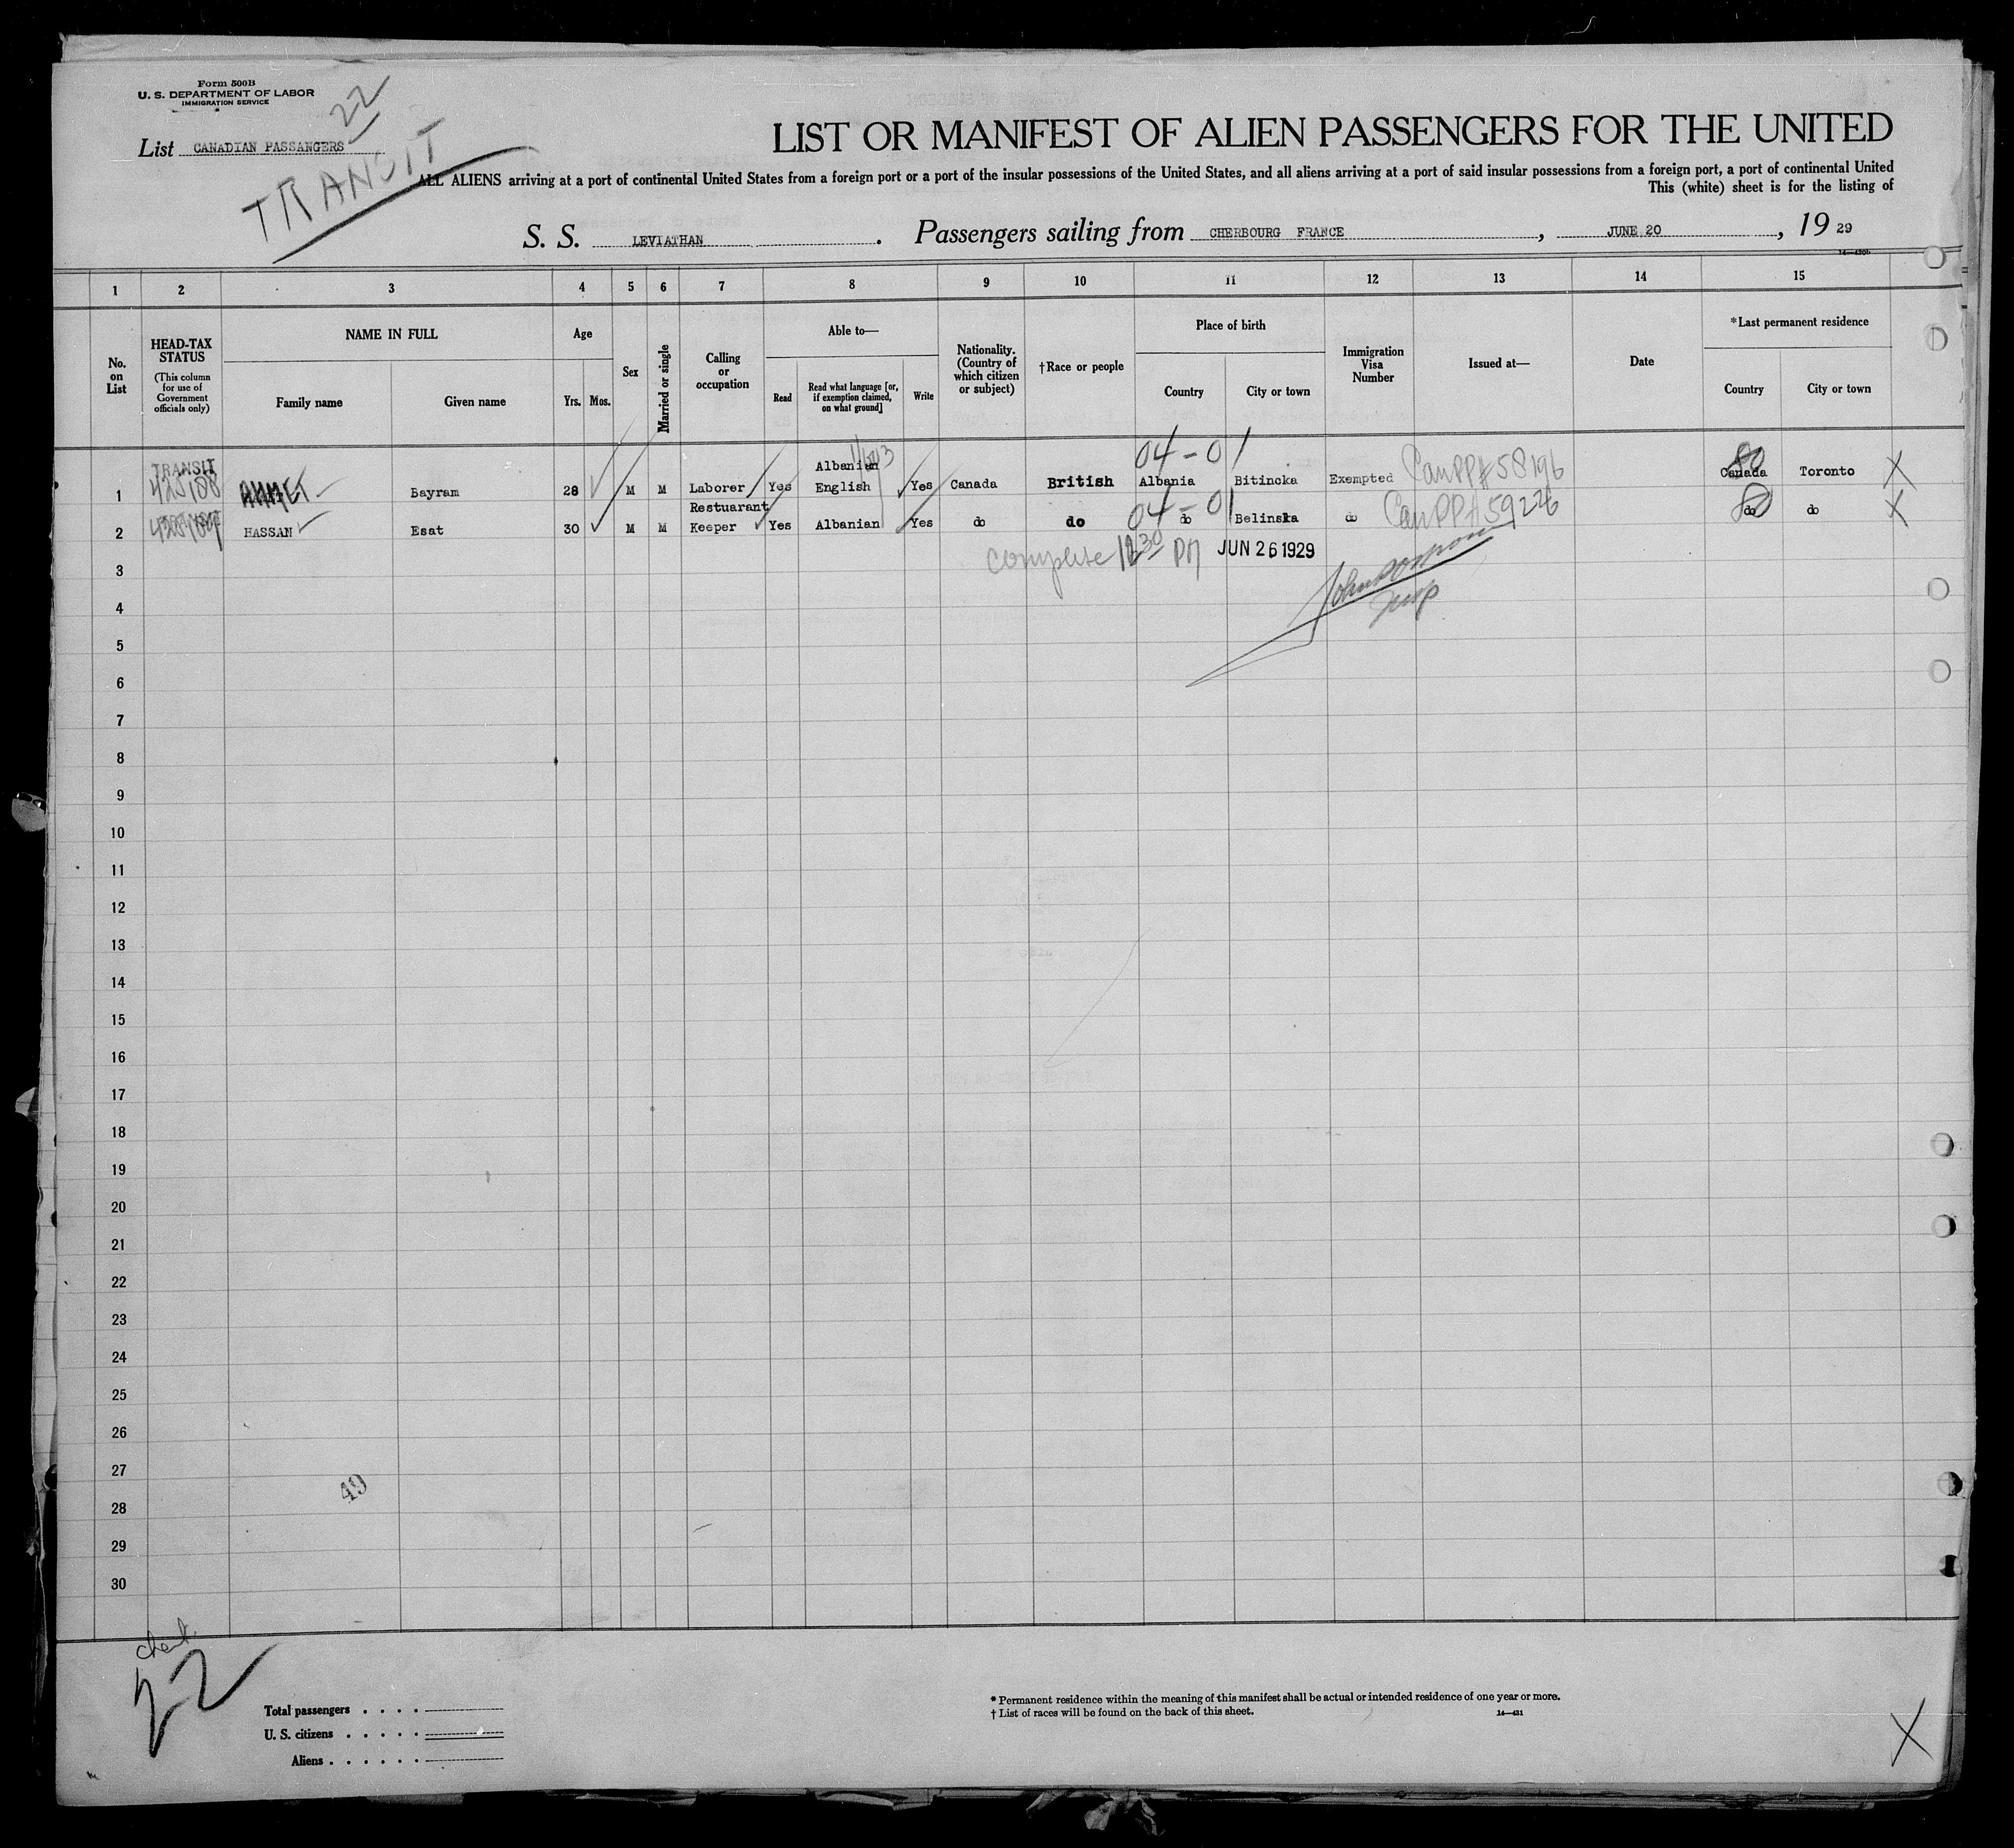 Form 500B
U. S. DEPARTMENT OF LABOR
IMMIGRATION SERVICE
22
List CANADIAN PASSANGERS
TRANSIT
LIST OR MANIFEST OF ALIEN PASSENGERS FOR THE UNITED
ALL ALIENS arriving at a port of continental United States from a foreign port or a port of the insular possessions of the United States, and all aliens arriving at a port of said insular possessions from a foreign port, a port of continental United
This (white) sheet is for the listing of
S. S. LEVIATHAN . Passengers sailing from CHERBOURG FRANCE , JUNE 20 , 19 29
14—430b
1 2 3 4 5 6 7 8 9 10 11 12 13 14 15
No. on List
HEAD-TAX STATUS
(This column for use of Government officials only)
NAME IN FULL
Family name Given name
Age
Yrs. Mos.
Sex
Married or single
Calling or occupation
Able to—
Read
Read what language [or, if exemption claimed, on what ground]
Write
Nationality. (Country of which citizen or subject)
†Race or people
Place of birth
Country City or town
Immigration Visa Number
Issued at—
Date
*Last permanent residence
Country City or town
04-01
TRANSIT Albanian
1 AHMET Bayram 28 M M Laborer Yes English Yes Canada British Albania Bitincka Exempted Can PP# 58196 Canada Toronto X
04-01
Restuarant
2 HASSAN Esat 30 M M Keeper Yes Albanian Yes do do do Belinska do Can PP# 59226 do do X
complete 12 30 PM JUN 26 1929
3
Insp
4
5
6
7
8
9
10
11
12
13
14
15
16
17
18
19
20
21
22
23
24
25
26
27
49
28
29
30
22
Total passengers . . . .
U. S. citizens . . . . .
Aliens . . . . . .
* Permanent residence within the meaning of this manifest shall be actual or intended residence of one year or more.
† List of races will be found on the back of this sheet.
14—431
X